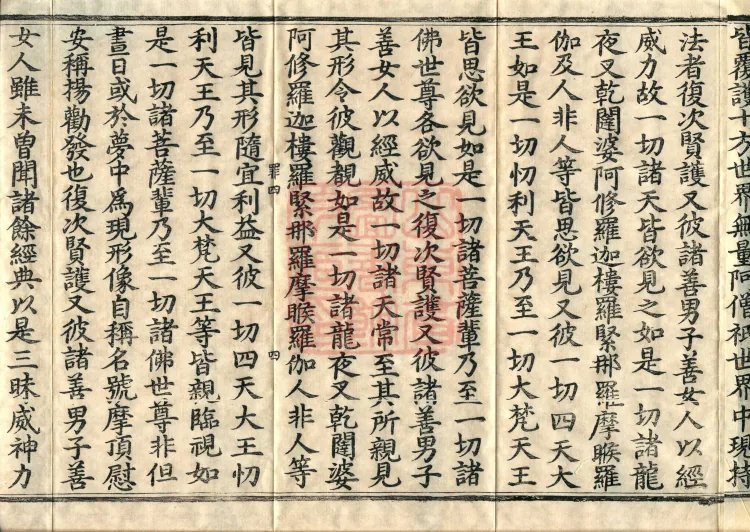 皆覆護十方世界無量阿僧祇世界中現持
法者復次賢護又彼諸善男子善女人以經
威力故一切諸天皆欲見之如是一切諸龍
夜叉乾闥婆阿修羅迦樓羅緊那羅摩睺羅
伽及人非人等皆思欲見又彼一切四天大
王如是一切忉利天王乃至一切大梵天王
皆思欲見如是一切諸菩薩輩乃至一切諸
佛世尊各欲見之復次賢護又彼諸善男子
善女人以經威故一切諸天常至其所親見
其形令彼觀覩如是一切諸龍夜叉乾闥婆
阿修羅迦樓羅緊那羅摩睺羅伽人非人等
罪四 四
皆見其形隨宜利益又彼一切四天大王忉
利天王乃至一切大梵天王等皆親臨視如
是一切諸菩薩輩乃至一切諸佛世尊非但
晝日或於夢中爲現形像自稱名號摩頂慰
安稱揚勸發也復次賢護又彼諸善男子善
女人雖未曾聞諸餘經典以是三昧威神力